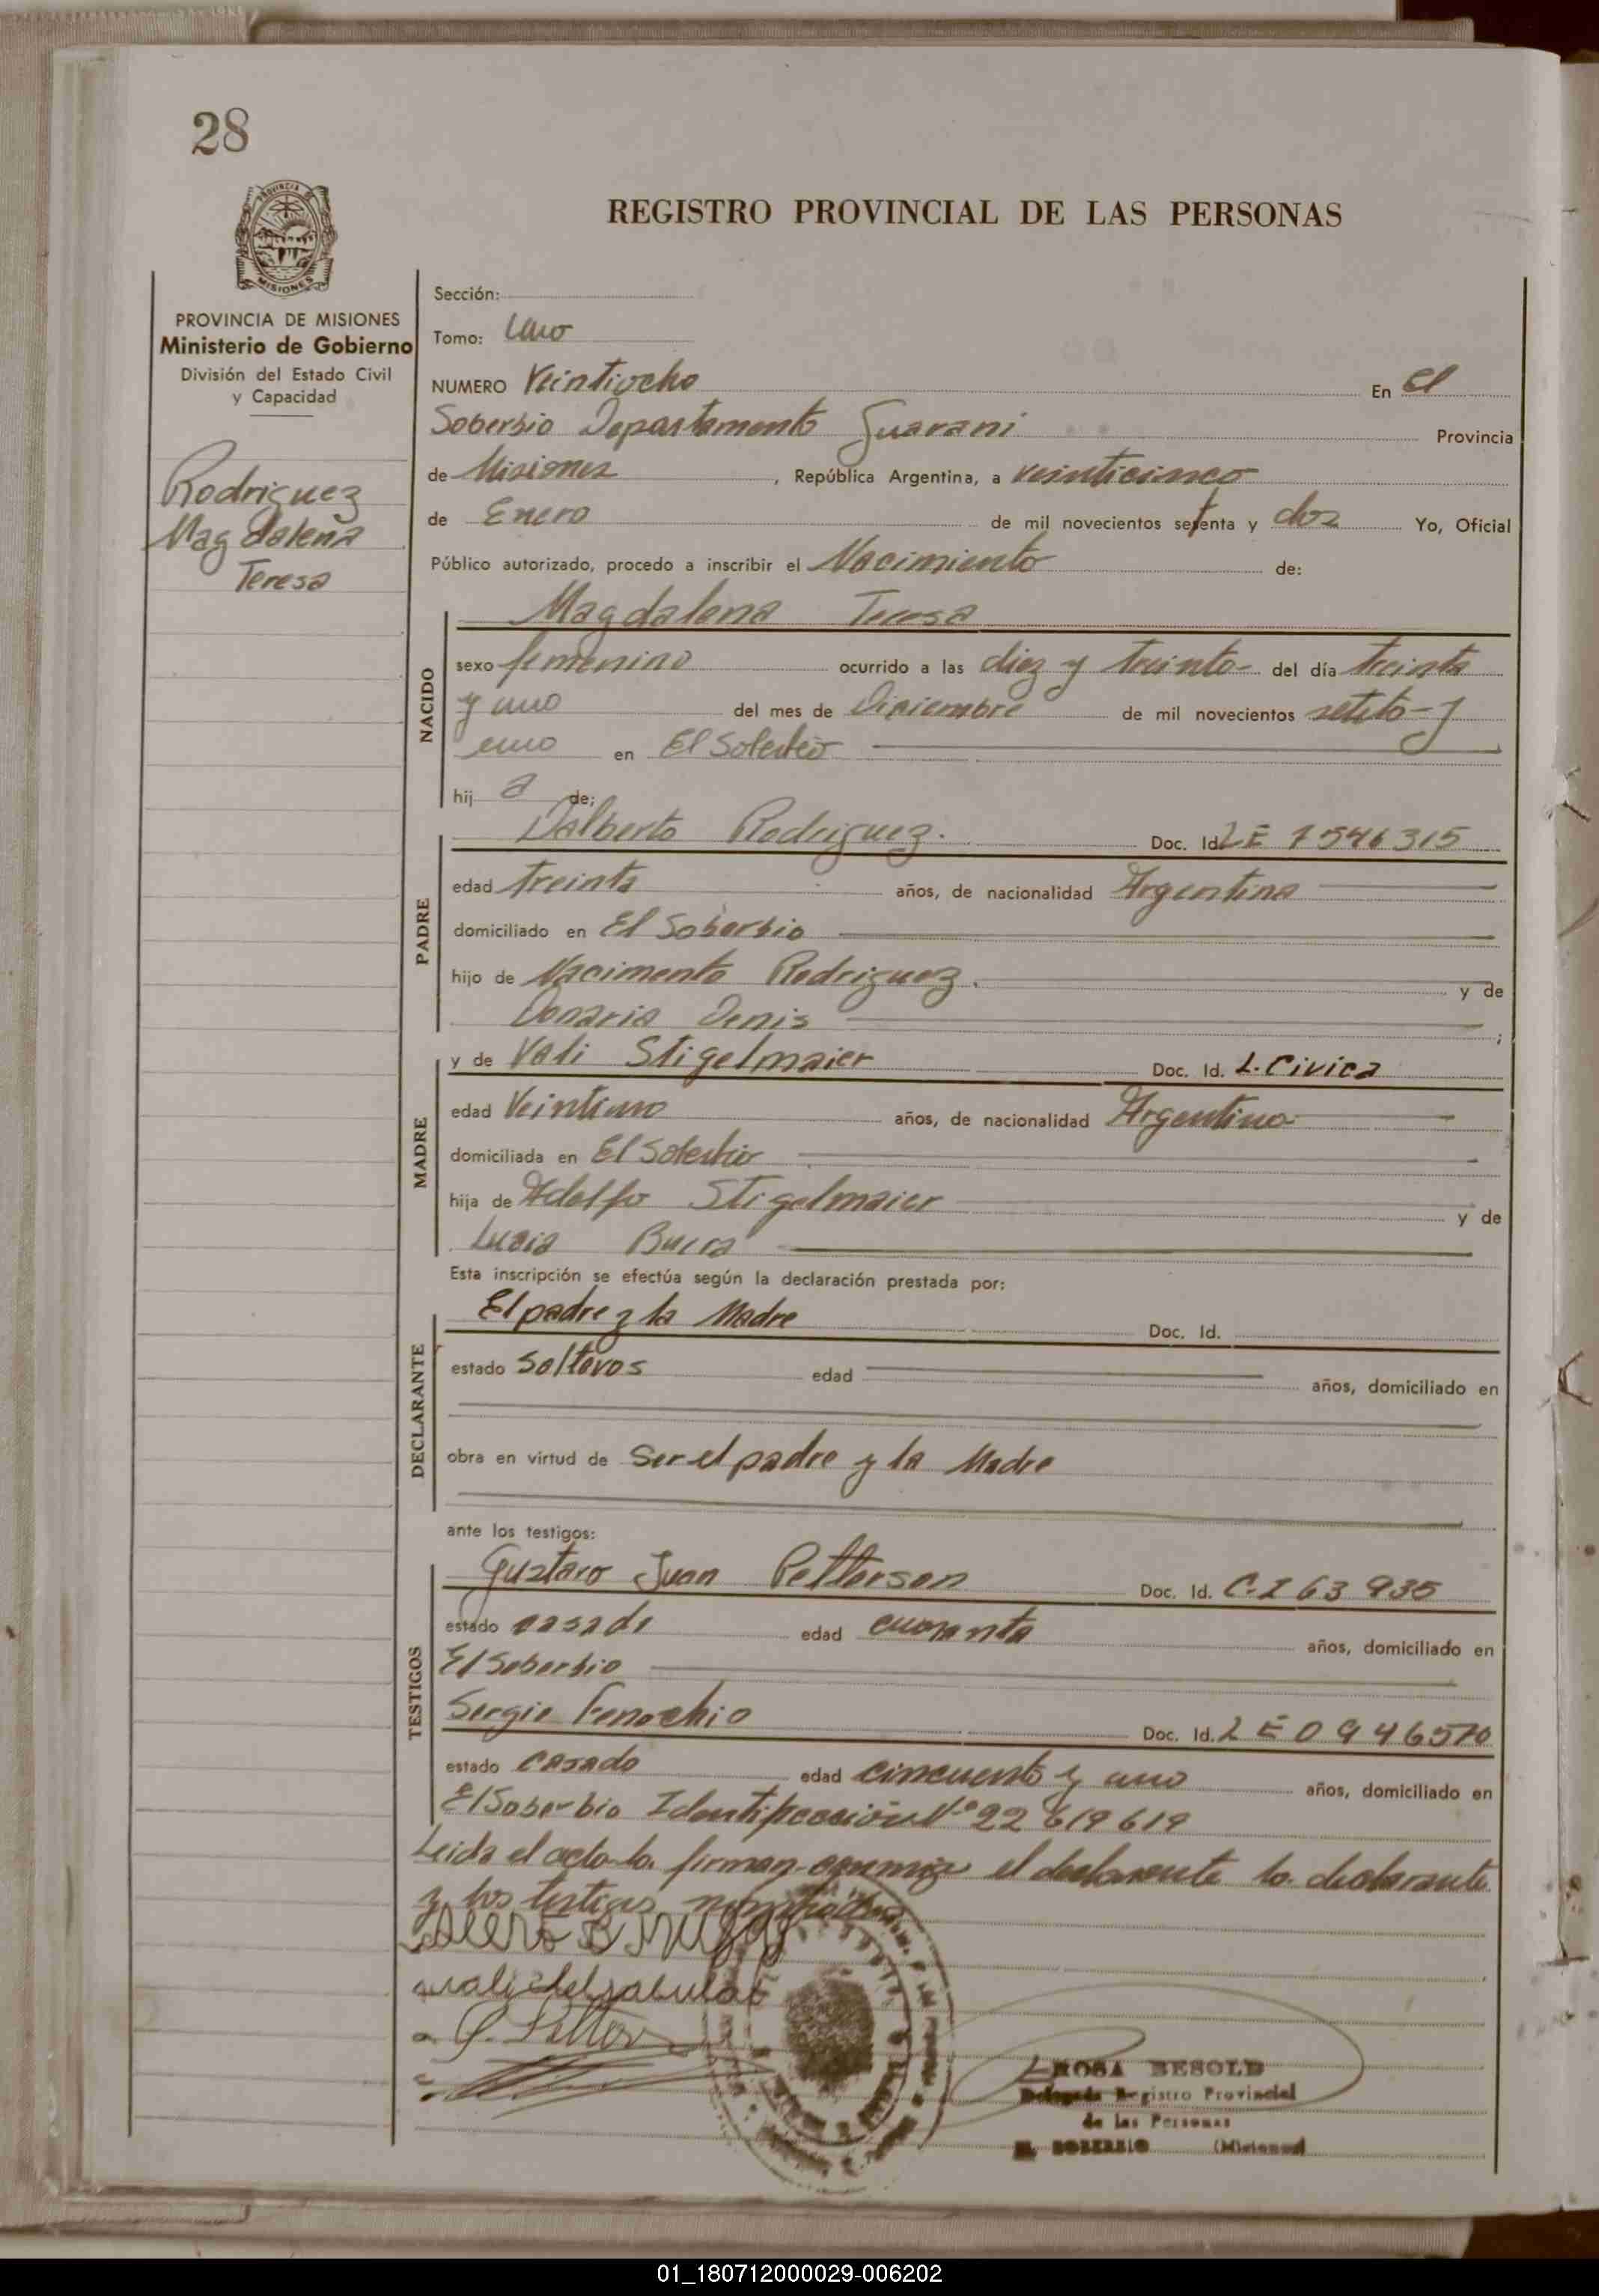 28
REGISTRO PROVINCIAL DE LAS PERSONAS
PROVINCIA
MISIONES
PROVINCIA DE MISIONES
Ministerio de Gobierno
División del Estado Civil
y Capacidad
Rodriguez
Magdalena
Teresa
Sección:
Tomo: Uno
NUMERO Veintiocho En El
Soberbio Departamento Guarani Provincia
de Misiones, República Argentina, a veinticinco
de Enero de mil novecientos setenta y dos Yo, Oficial
Público autorizado, procedo a inscribir el Nacimiento de:
NACIDO
Magdalena Teresa
sexo femenino ocurrido a las diez y treinta del día treinta
y uno del mes de Diciembre de mil novecientos y
uno en El Soberbio
hij a de:
PADRE
Dalberto Rodriguez. Doc. Id. LE 7546315
edad treinta años, de nacionalidad Argentina
domiciliado en El Soberbio
hijo de Nacimento Rodriguez. y de
Denis ;
MADRE
y de Vali Stigelmaier Doc. Id. L. Civica
edad Veintiuno años, de nacionalidad Argentina
domiciliada en El Soberbio
hija de Adolfo Stigelmaier y de
Lucia
Esta inscripción se efectúa según la declaración prestada por:
DECLARANTE
El padre y la Madre Doc. Id.
estado Solteros edad años, domiciliado en
obra en virtud de Ser el padre y la Madre
ante los testigos:
TESTIGOS
Gustavo Juan Petterson Doc. Id. C.I 63 935
estado casado edad cuarenta años, domiciliado en
El Soberbio
Sergio Fenochio Doc. Id. LE 0946570
estado casado edad cincuenta y uno años, domiciliado en
El Soberbio Identificación Nº 22 619 619
Leida el acta la firman conmigo el declarante la declarante
y los testigos
ROSA BESOLD
Delegada Registro Provincial
de las Personas
EL SOBERBIO (Misiones)
01_180712000029-006202